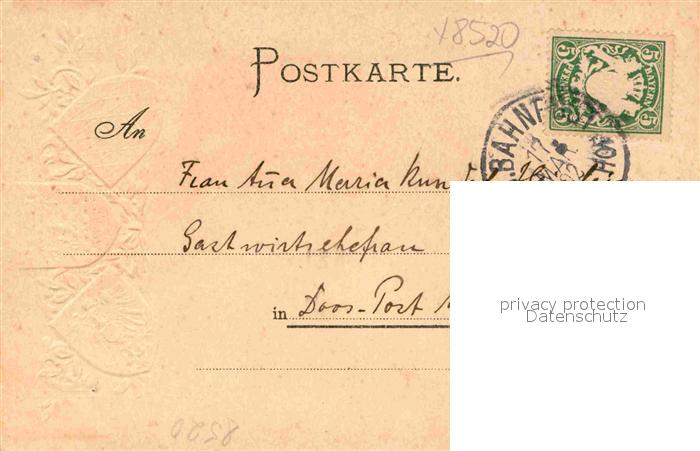 x8520
POSTKARTE.
5 5
PFENNIG BAYERN
5 5
BAHNPOST
17 MAI
An
Frau Ana Maria
Gastwirtsehefrau
in Doos-Post
privacy protection
Datenschutz
8520